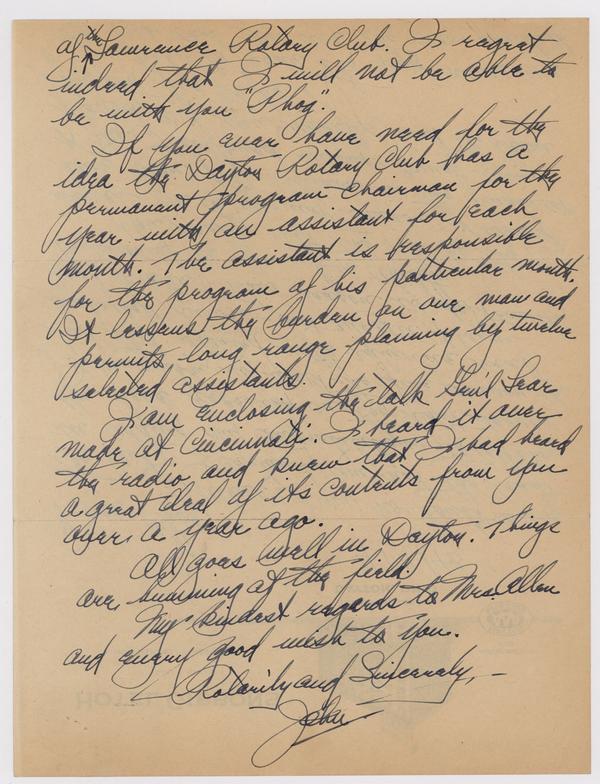 of the Lawrence Rotary Club. I regret
indeed that I will not be able to
be with you "Phog".
If you ever have need for the
idea the Dayton Rotary Club has a
permanant program chairman for the
year with an assistant for each
month. The assistant is responsible
for the program of his particular month.
It lessens the burden on one man and
permits long range planning by twelve
selected assistants.
I am enclosing the talk Gen'l Lear
made at Cincinnati. I heard it over
the radio and knew that I had heard
a great deal of its contents from you
over a year ago.
All goes well in Dayton. Things
are humming at the field.
My kindest regards to Mrs. Allen
and every good wish to you.
Rotarily and Sincerely, –
John